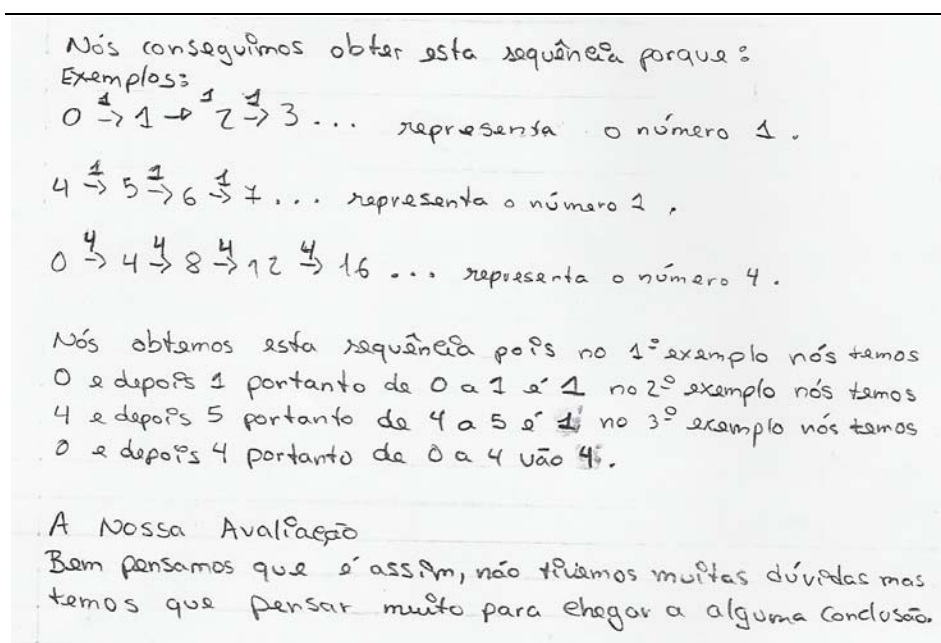 Nós conseguimos obter esta sequência porque:
Exemplos:
0 →¹ 1 →¹ 2 →¹ 3 ... representa o número 1.
4 →¹ 5 →¹ 6 →¹ 7 ... representa o número 1.
0 →⁴ 4 →⁴ 8 →⁴ 12 →⁴ 16 ... representa o número 4.
Nós obtemos esta sequência pois no 1º exemplo nós temos
0 e depois 1 portanto de 0 a 1 é 1 no 2º exemplo nós temos
4 e depois 5 portanto de 4 a 5 é 1 no 3º exemplo nós temos
0 e depois 4 portanto de 0 a 4 vão 4.
A Nossa Avaliação
Bem pensamos que é assim, não tivemos muitas dúvidas mas
temos que pensar muito para chegar a alguma conclusão.